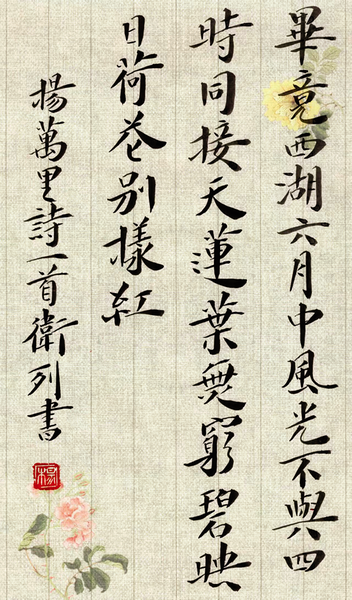 畢竟西湖六月中風光不與四
時同接天蓮葉無窮碧映
日荷花別樣紅
楊萬里詩一首衛列書
楊